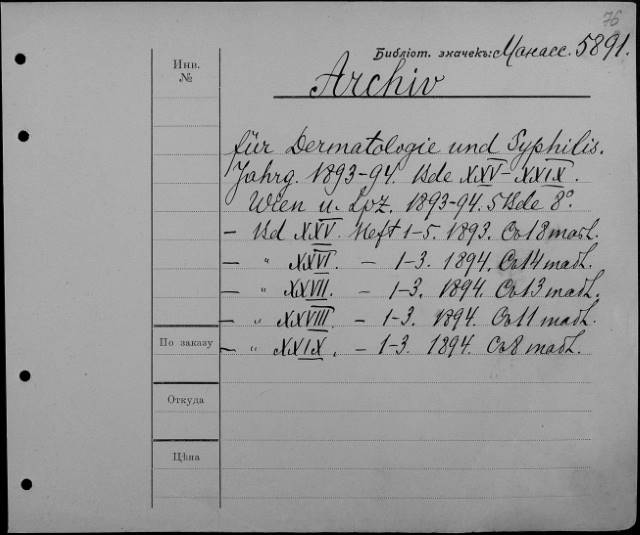 76
Библіот. значекъ: Манасс. 5891.
Инв. №
Archiv
für Dermatologie und Syphilis.
Jahrg. 1893-94. Bde XXV-XXIX.
Wien u. Lpz. 1893-94. 5 Bde 8°.
— Bd XXV. Heft 1-5. 1893. Съ 18 табл.
— " XXVI. — 1-3. 1894. Съ 14 табл.
— " XXVII. — 1-3. 1894. Съ 13 табл.
— " XXVIII — 1-3. 1894. Съ 11 табл.
По заказу
— " XXIX. — 1-3. 1894. Съ 8 табл.
Откуда
Цѣна